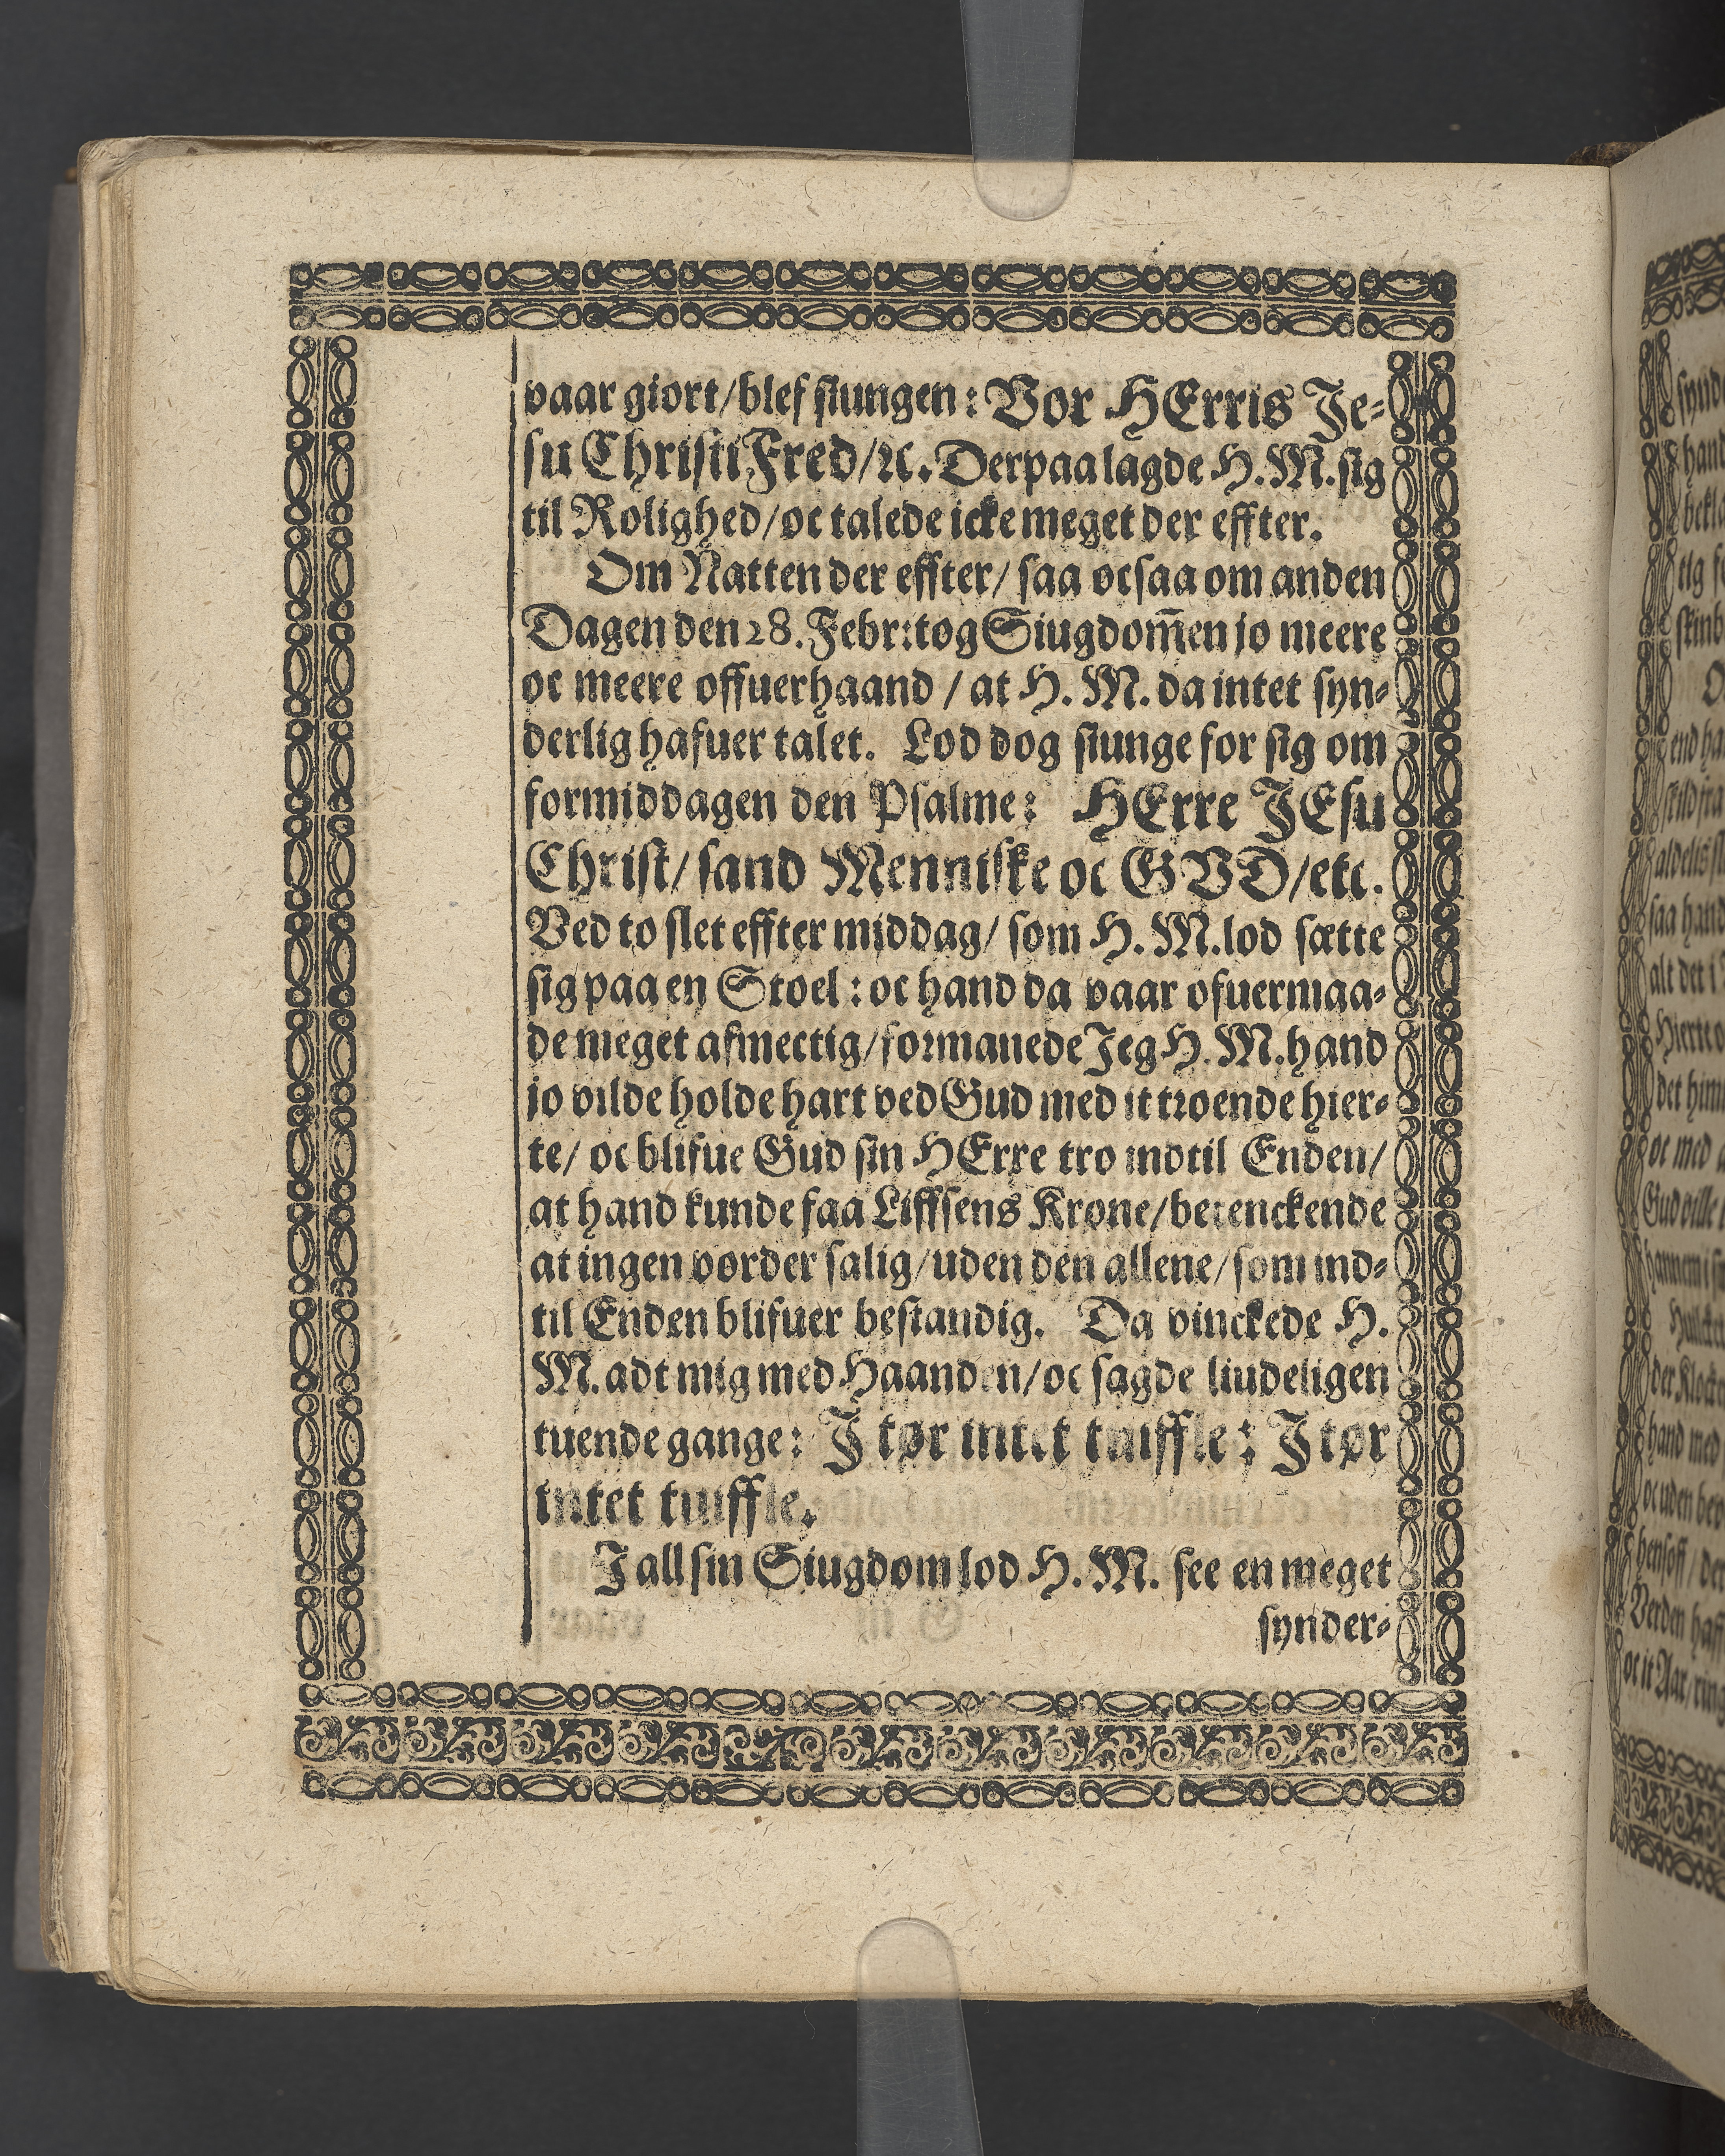 vaar giort/blef siungen: Vor HErris Je-
su Christi Fred/ꝛc. Derpaa lagde H. M. sig
til Rolighed/oc talede icke meget der effter.
Om Natten der effter/ saa ocsaa om anden
Dagen den 28. Febr: tog Siugdom̄en jo meere
oc meere offuerhaand / at H. M. da intet syn-
derlig hafuer talet. Lod dog siunge for sig om
formiddagen den Psalme: HErre JEsu
Christ/ sand Menniske oc GVD/etc.
Ved to slet effter middag/ som H. M. lod sætte
sig paa en Stoel: oc hand da vaar ofuermaa-
de meget afmectig/formanede Jeg H. M. hand
jo vilde holde hart ved Gud med it troende hier-
te/ oc blifue Gud sin HErre tro indtil Enden/
at hand kunde faa Liffsens Krone/betenckende
at ingen vorder salig/uden den allene/som ind-
til Enden blifuer bestandig. Da vinckede H.
M. adt mig med Haanden/oc sagde liudeligen
tuende gange: J tør intet tuiffle: J tør
intet tuiffle.
J all sin Siugdom lod H. M. see en meget
synder-